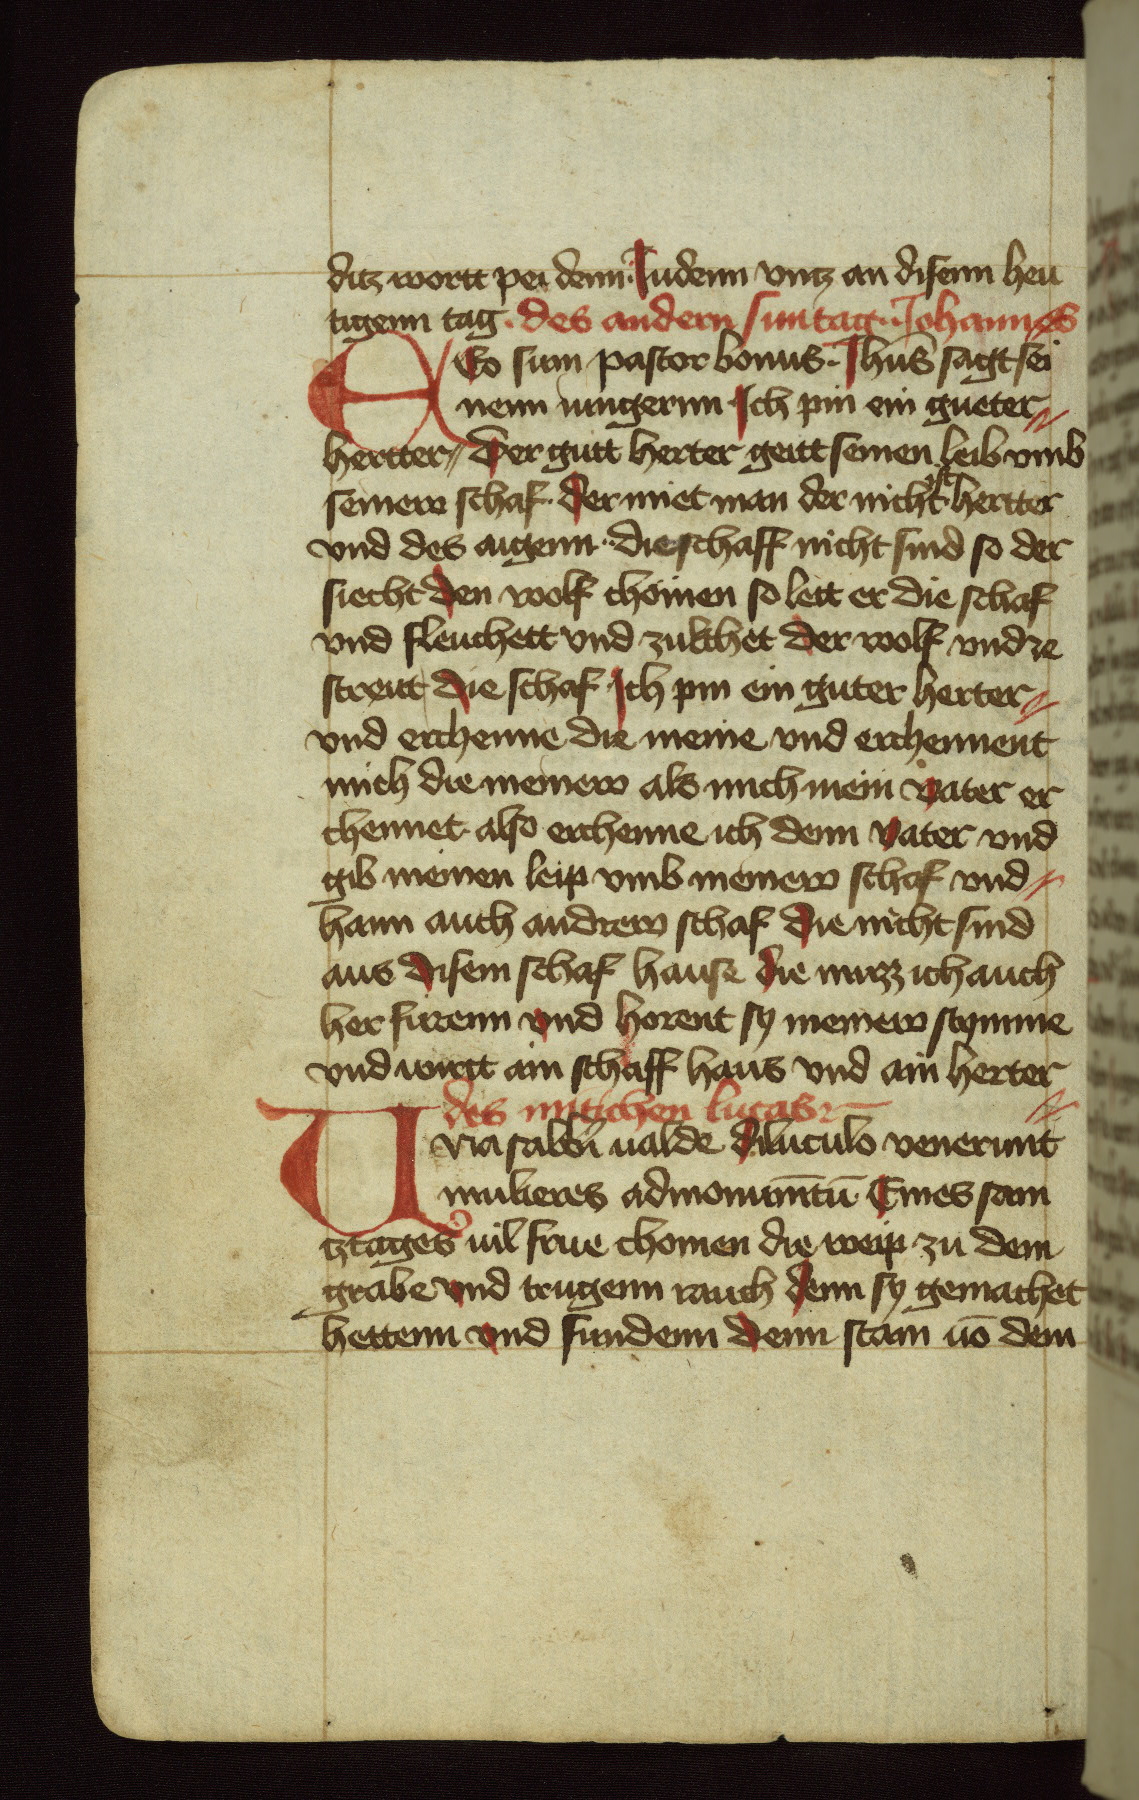 ditz wortt pei denn Iudenn vntz an disenn heu
tigenn tag. des andern suntag. Johannes
EGo sum pastor bonus. Ihus sagt sei
nenn iungernn Ich pin ein gueter
hertter Der gutt herter geitt seinen leib vmb
seinew schaf. der miet man der nicht ist hertter
vnd des aigenn die schaff nicht sind so der
siecht den wolf chömen so lett er die schaf
vnd fleuchett vnd zukchet der wolf vnd ze
streut die schaf Ich pin ein guter herter
vnd erchenne die meine vnd erchennent
mich die meinew als mich mein vater er
chennet also erchenne ich denn vater vnd
gib meinen leip vmb meinew schaf vnd
hann auch andrew schaf die nicht sind
aus disem schaf hause die muzz ich auch
her fürenn vnd horent sy meinew stymme
vnd wirtt ain schaff haus vnd ain herter
des mitichen lucas
Vna sabbi ualde diluculo venerunt
mulieres ad monumētū Eines sam
tztages uil frue chomen die weip zu dem
grabe vnd trugenn rauch denn sy gemachet
hettenn vnd fundenn denn stain uō dem